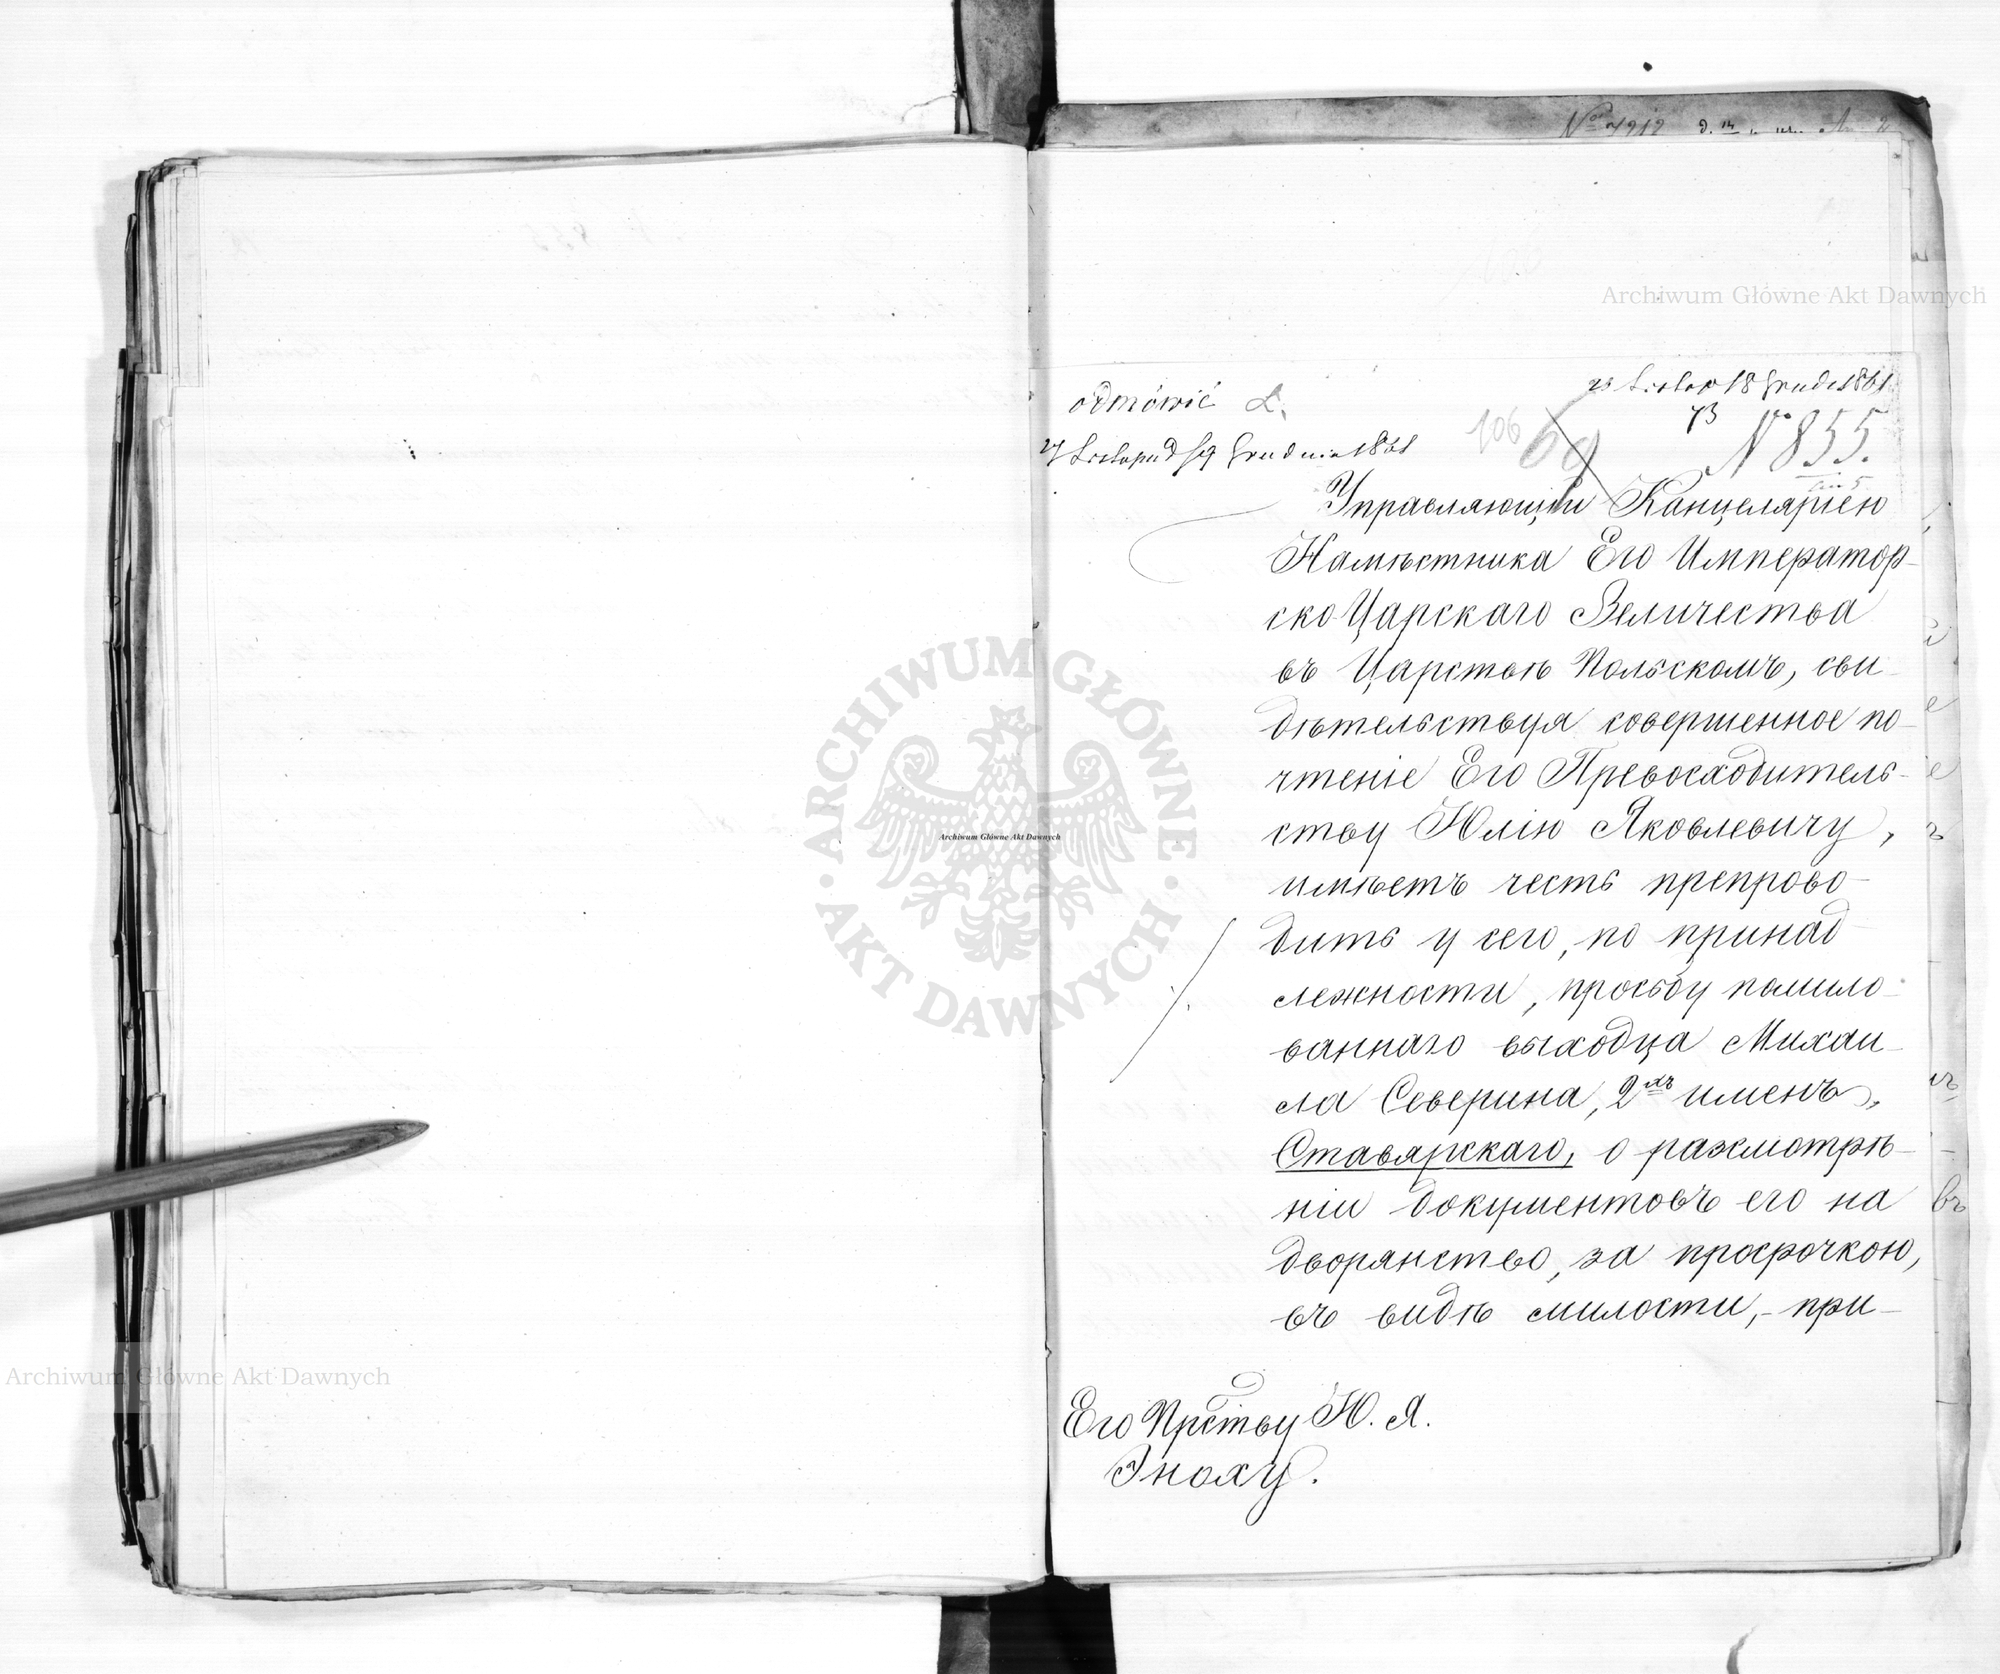 Archiwum Główne Akt Dawnych
odmówić
27 Listopad/9 Grudnia 1861
18 Grud. 1861
106
69
73
№ 855.
Управляющій Канцеляріею
Намѣстника Его Император-
ско Царскаго Величества
въ Царствѣ Польскомъ, сви-
дѣтельствуя совершенное по-
чтеніе Его Превосходитель-
ству Юлію Яковлевичу,
имѣетъ честь препрово-
дить у сего, по принад-
лежности, просьбу помило-
ваннаго выходца Михаи-
ла Северина, 2хъ именъ,
Ставярскаго, о разсмотрѣ-
ніи документовъ его на
дворянство, за просрочкою,
въ видѣ милости,- при-
Его Прству Ю. Я.
Эноху.
ARCHIWUM GŁÓWNE · AKT DAWNYCH ·
Archiwum Główne Akt Dawnych
Archiwum Główne Akt Dawnych